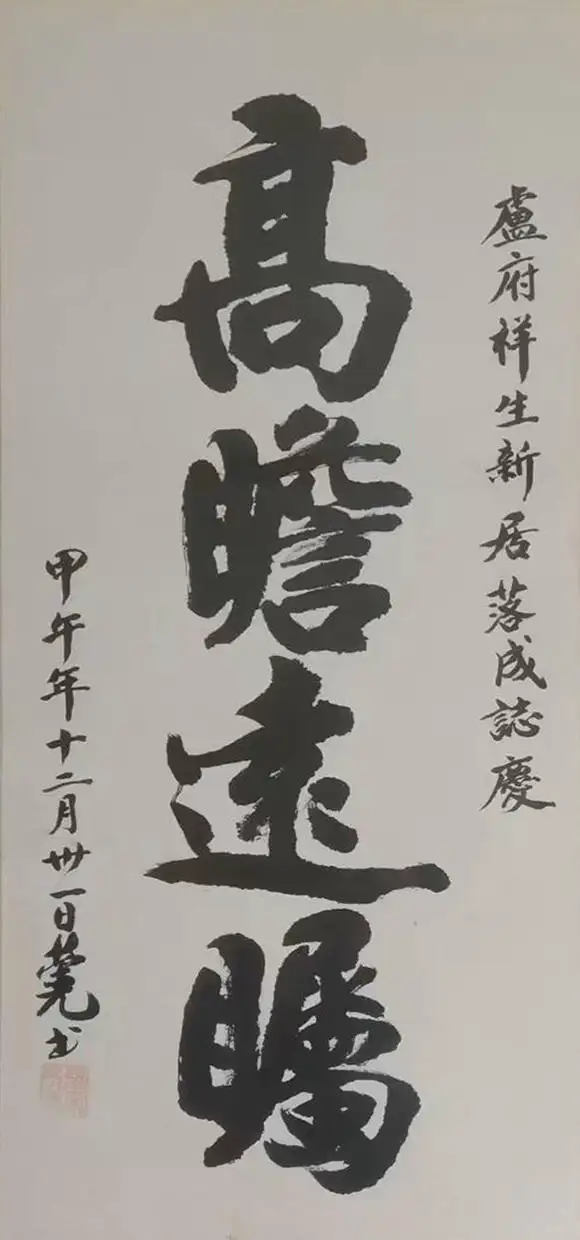 盧府祥生新居落成誌慶
高瞻遠矚
甲午年十二月卅一日 書